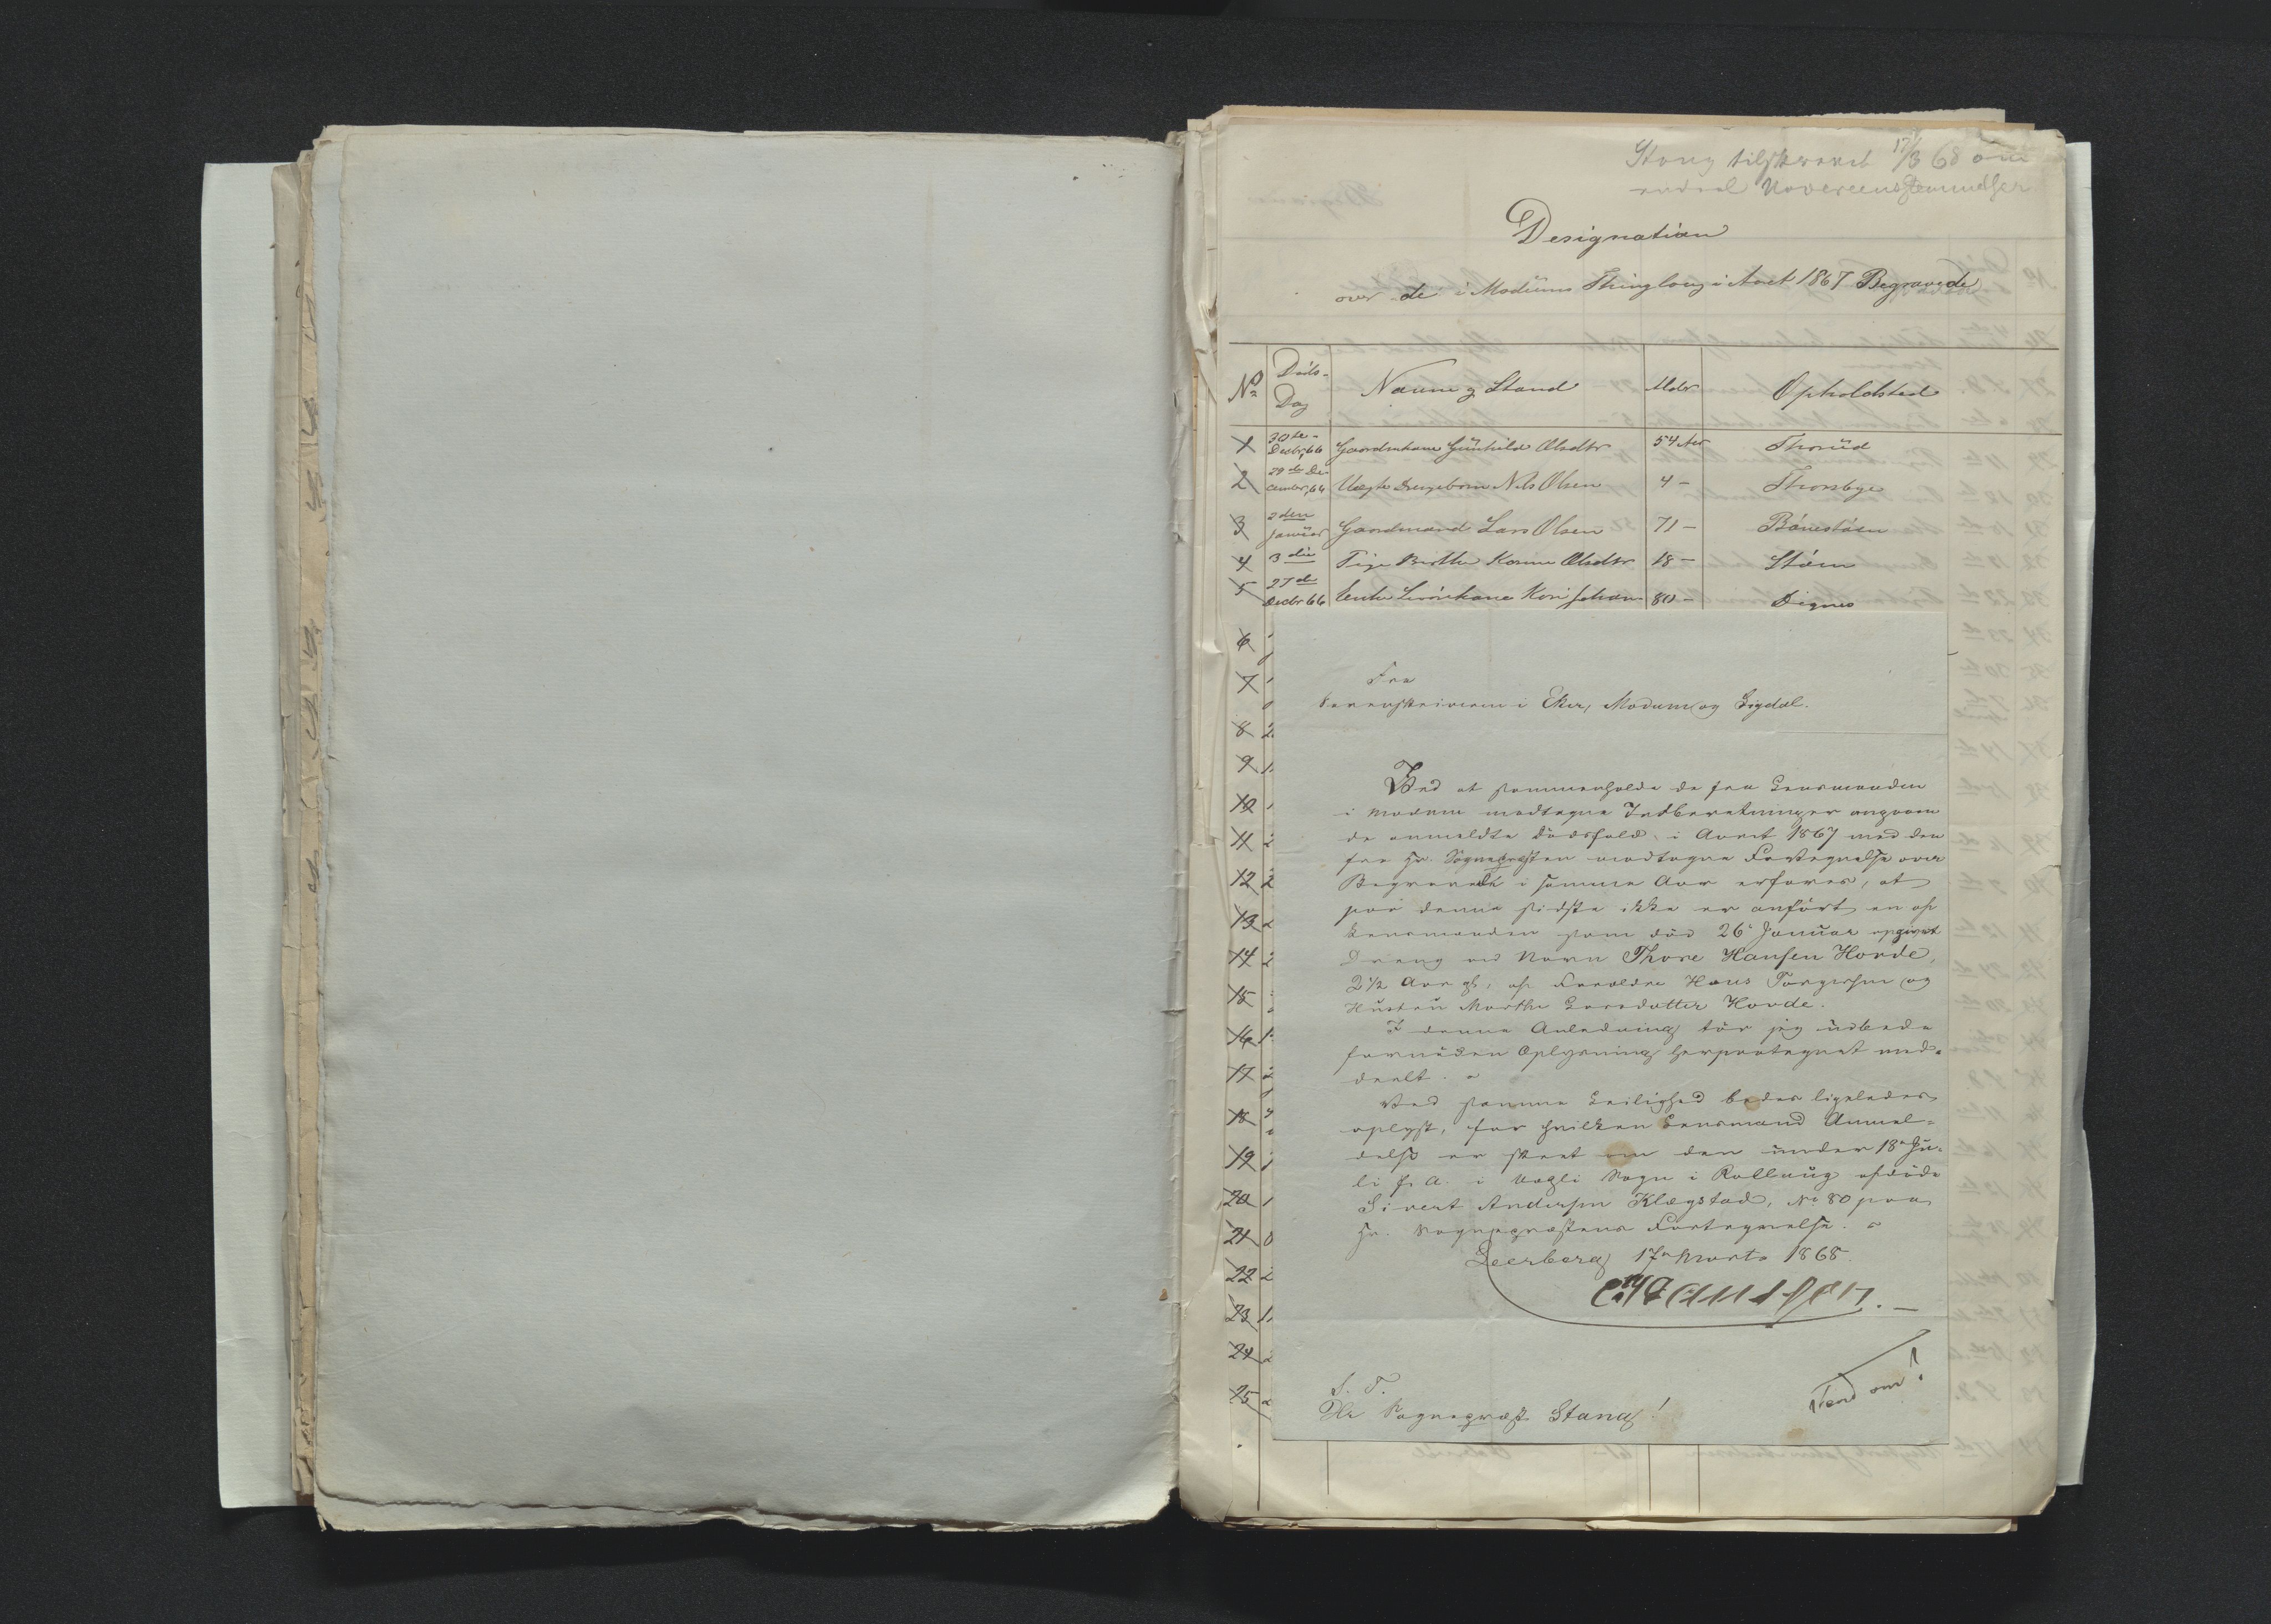 Stang tilskrevet 17/3 68 om
endeel Uoverensstemmelser
Designation
over de i Modums Thinglaug i Aaret 1867 Begravede
No Döds-Dag Navn og Stand Alder Opholdsted
1 30te Decbr, 66 Gaardmkone Gunhild Olsdtr 54 Aar Thorud
2 29de December, 66 Uægte Drengebarn Nils Olsen 4 - Thorsbye
3 2den Januar Gaardmand Lars Olsen 71 -
4 3die Pige Berthe Karine Olsdtr 18 - Stöen
5 27de Decbr 66 Enke Kari Johans 80 - Dignes
6
7
8
9
10
11
12
13
14
15
16
17
18
19
20
21
22
23
24
25
Fra
Sorenskriveren i Eker, Modum og Sigdal.
Ved at sammenholde de fra Lensmanden
i Modum modtagne Indberetninger angaaen
de anmeldte Dödsfald i Aaret 1867 med den
fra Hr. Sognepræsten modtagne Fortegnelse over
Begravede i samme Aar erfares, at
paa denne sidste ikke er anfört en af
Lensmanden som död 26' Januar opgivet
Dreng ved Navn Thore Hansen Hovde,
2 1/2 Aar gl, af Forældre Hans Torgersen og
Hustru Marthe Larsdatter Hovde.
I denne Anledning tör jeg udbede
fornöden Oplysning herpaategnet med-
deelt.
Ved samme Leilighed bedes ligeledes
oplyst, for hvilken Lensmand Anmel-
delse er skeet om den under 18' Ju-
li f. A. i Vegli Sogn i Rollaug afdöde
Sivert Andersen Klægstad, No 80 paa
Hr. Sognepræstens Fortegnelse.
Leerberg 17' Marts 1868.
S. T.
Hr Sognepræst Stang!
Vend om!